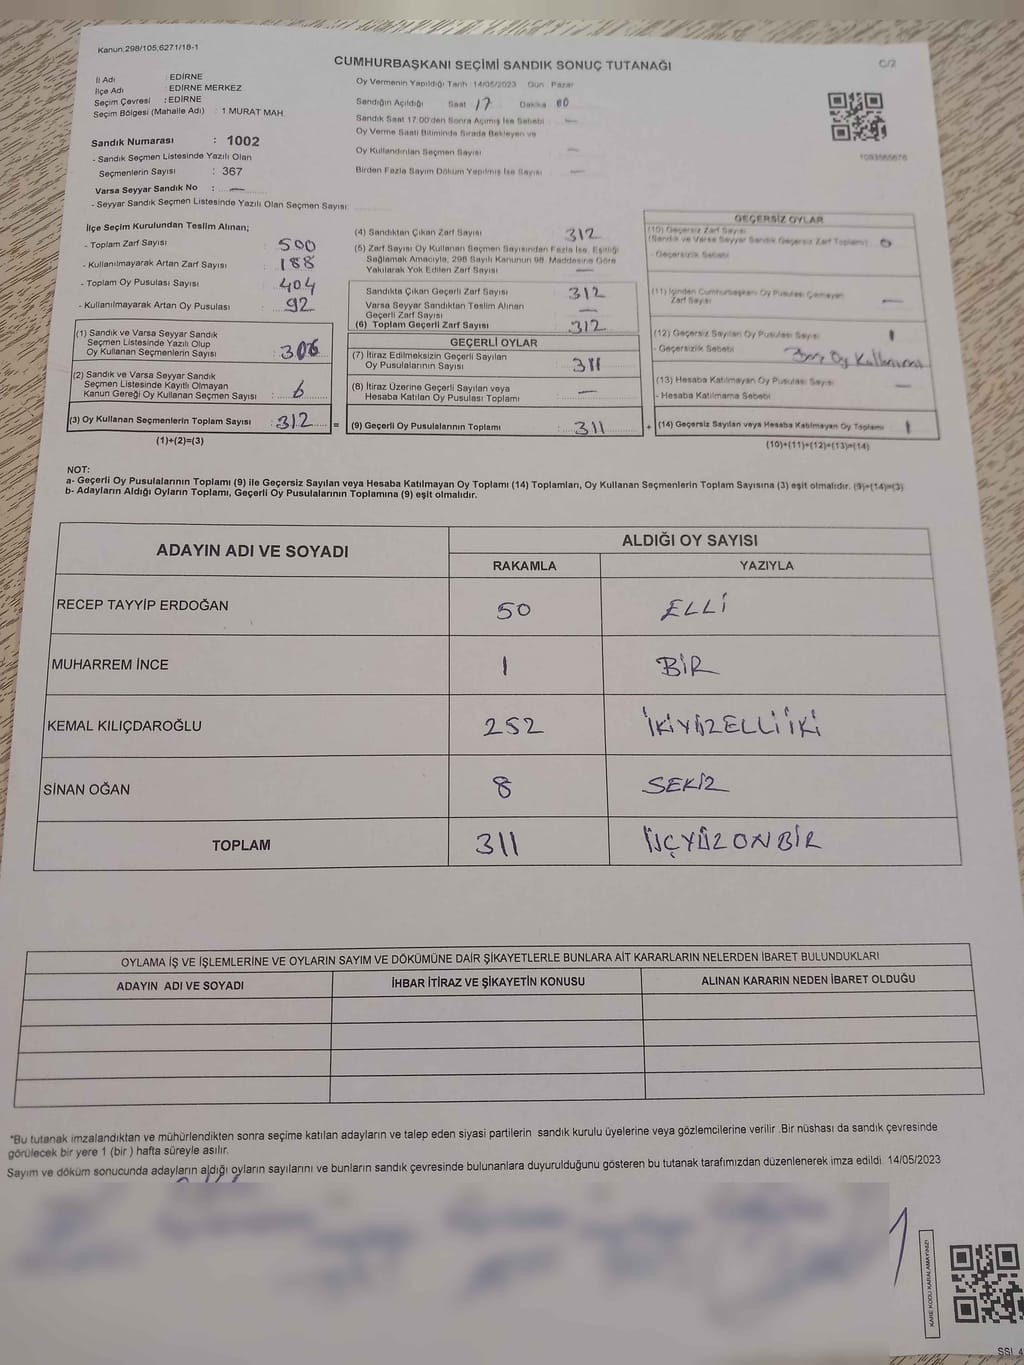 Kanun:298/105,6271/18-1
CUMHURBAŞKANI SEÇİMİ SANDIK SONUÇ TUTANAĞI
C/2
İl Adı : EDİRNE
İlçe Adı : EDİRNE MERKEZ
Seçim Çevresi : EDİRNE
Seçim Bölgesi (Mahalle Adı) : 1 MURAT MAH
Sandık Numarası : 1002
- Sandık Seçmen Listesinde Yazılı Olan
Seçmenlerin Sayısı : 367
Varsa Seyyar Sandık No : —
- Seyyar Sandık Seçmen Listesinde Yazılı Olan Seçmen Sayısı:
Oy Vermenin Yapıldığı Tarih : 14/05/2023 Gün : Pazar
Sandığın Açıldığı Saat 17 Dakika 00
Sandık Saat 17:00'den Sonra Açımış İse Sebebi : —
Oy Verme Saati Bitiminde Sırada Bekleyen ve
Oy Kullandırılan Seçmen Sayısı —
Birden Fazla Sayım Döküm Yapılmış İse Sayısı —
1093565676
İlçe Seçim Kurulundan Teslim Alınan;
- Toplam Zarf Sayısı : 500
- Kullanılmayarak Artan Zarf Sayısı : 188
- Toplam Oy Pusulası Sayısı : 404
- Kullanılmayarak Artan Oy Pusulası : 92
(1) Sandık ve Varsa Seyyar Sandık
Seçmen Listesinde Yazılı Olup
Oy Kullanan Seçmenlerin Sayısı : 306
(2) Sandık ve Varsa Seyyar Sandık
Seçmen Listesinde Kayıtlı Olmayan
Kanun Gereği Oy Kullanan Seçmen Sayısı : 6
(3) Oy Kullanan Seçmenlerin Toplam Sayısı : 312
(1)+(2)=(3)
(4) Sandıktan Çıkan Zarf Sayısı : 312
(5) Zarf Sayısı Oy Kullanan Seçmen Sayısından Fazla İse, Eşitliği
Sağlamak Amacıyla, 298 Sayılı Kanunun 98. Maddesine Göre
Yakılarak Yok Edilen Zarf Sayısı —
Sandıkta Çıkan Geçerli Zarf Sayısı : 312
Varsa Seyyar Sandıktan Teslim Alınan
Geçerli Zarf Sayısı —
(6) Toplam Geçerli Zarf Sayısı : 312
GEÇERLİ OYLAR
(7) İtiraz Edilmeksizin Geçerli Sayılan
Oy Pusulalarının Sayısı : 311
(8) İtiraz Üzerine Geçerli Sayılan veya
Hesaba Katılan Oy Pusulası Toplamı : —
= (9) Geçerli Oy Pusulalarının Toplamı : 311
GEÇERSİZ OYLAR
(10) Geçersiz Zarf Sayısı
(Sandık ve Varsa Seyyar Sandık Geçersiz Zarf Toplamı) : 0
- Geçersizlik Sebebi
(11) İçinden Cumhurbaşkanı Oy Pusulası Çıkmayan
Zarf Sayısı —
(12) Geçersiz Sayılan Oy Pusulası Sayısı 1
- Geçersizlik Sebebi Oy Kullanımı
(13) Hesaba Katılmayan Oy Pusulası Sayısı —
- Hesaba Katılmama Sebebi
+ (14) Geçersiz Sayılan veya Hesaba Katılmayan Oy Toplamı 1
(10)+(11)+(12)+(13)=(14)
NOT:
a- Geçerli Oy Pusulalarının Toplamı (9) ile Geçersiz Sayılan veya Hesaba Katılmayan Oy Toplamı (14) Toplamları, Oy Kullanan Seçmenlerin Toplam Sayısına (3) eşit olmalıdır. (9)+(14)=(3)
b- Adayların Aldığı Oyların Toplamı, Geçerli Oy Pusulalarının Toplamına (9) eşit olmalıdır.
ADAYIN ADI VE SOYADI
ALDIĞI OY SAYISI
RAKAMLA YAZIYLA
RECEP TAYYİP ERDOĞAN 50 ELLİ
MUHARREM İNCE 1 BİR
KEMAL KILIÇDAROĞLU 252 İKİYÜZELLİİKİ
SİNAN OĞAN 8 SEKİZ
TOPLAM 311 ÜÇYÜZONBİR
OYLAMA İŞ VE İŞLEMLERİNE VE OYLARIN SAYIM VE DÖKÜMÜNE DAİR ŞİKAYETLERLE BUNLARA AİT KARARLARIN NELERDEN İBARET BULUNDUKLARI
ADAYIN ADI VE SOYADI İHBAR İTİRAZ VE ŞİKAYETİN KONUSU ALINAN KARARIN NEDEN İBARET OLDUĞU
*Bu tutanak imzalandıktan ve mühürlendikten sonra seçime katılan adayların ve talep eden siyasi partilerin sandık kurulu üyelerine veya gözlemcilerine verilir .Bir nüshası da sandık çevresinde
görülecek bir yere 1 (bir ) hafta süreyle asılır.
Sayım ve döküm sonucunda adayların aldığı oyların sayılarını ve bunların sandık çevresinde bulunanlara duyurulduğunu gösteren bu tutanak tarafımızdan düzenlenerek imza edildi. 14/05/2023
KARE KODU KARALAMAYINIZ!
SSI_4